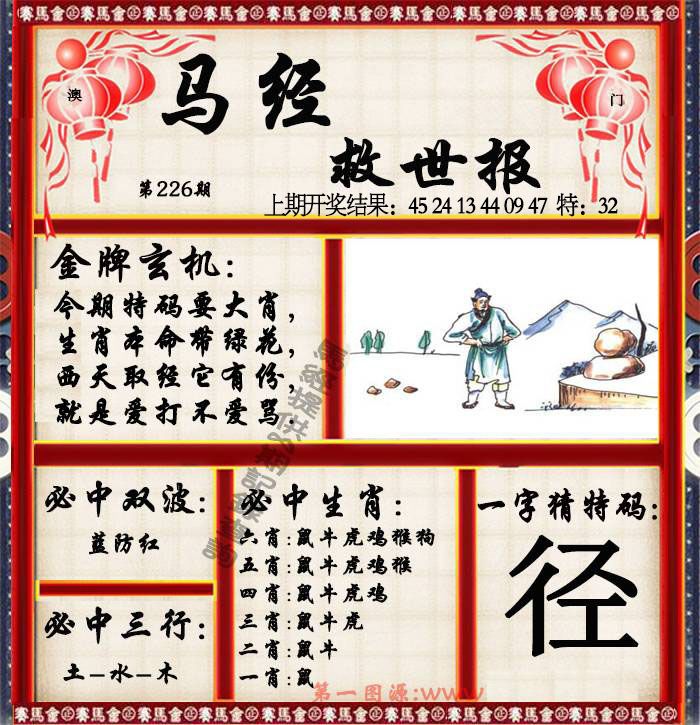 賽馬會 賽馬會 賽馬會 賽馬會 賽馬會 賽馬會 賽馬會
澳
门
马经
救世报
第226期
上期开奖结果：45 24 13 44 09 47 特：32
金牌玄机：
今期特码要大肖，
生肖本命带绿花，
西天取经它有份，
就是爱打不爱骂.
必中双波：
蓝防红
必中三行：
土–水–木
必中生肖：
六肖:鼠牛虎鸡猴狗
五肖:鼠牛虎鸡猴
四肖:鼠牛虎鸡
三肖:鼠牛虎
二肖:鼠牛
一肖:鼠
一字猜特码:
径
第一图源:www